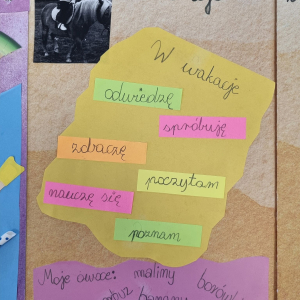 W wakacje
odwiedzę
spróbuję
zobaczę
poczytam
nauczę się
poznam
Moje owoce: maliny
banany